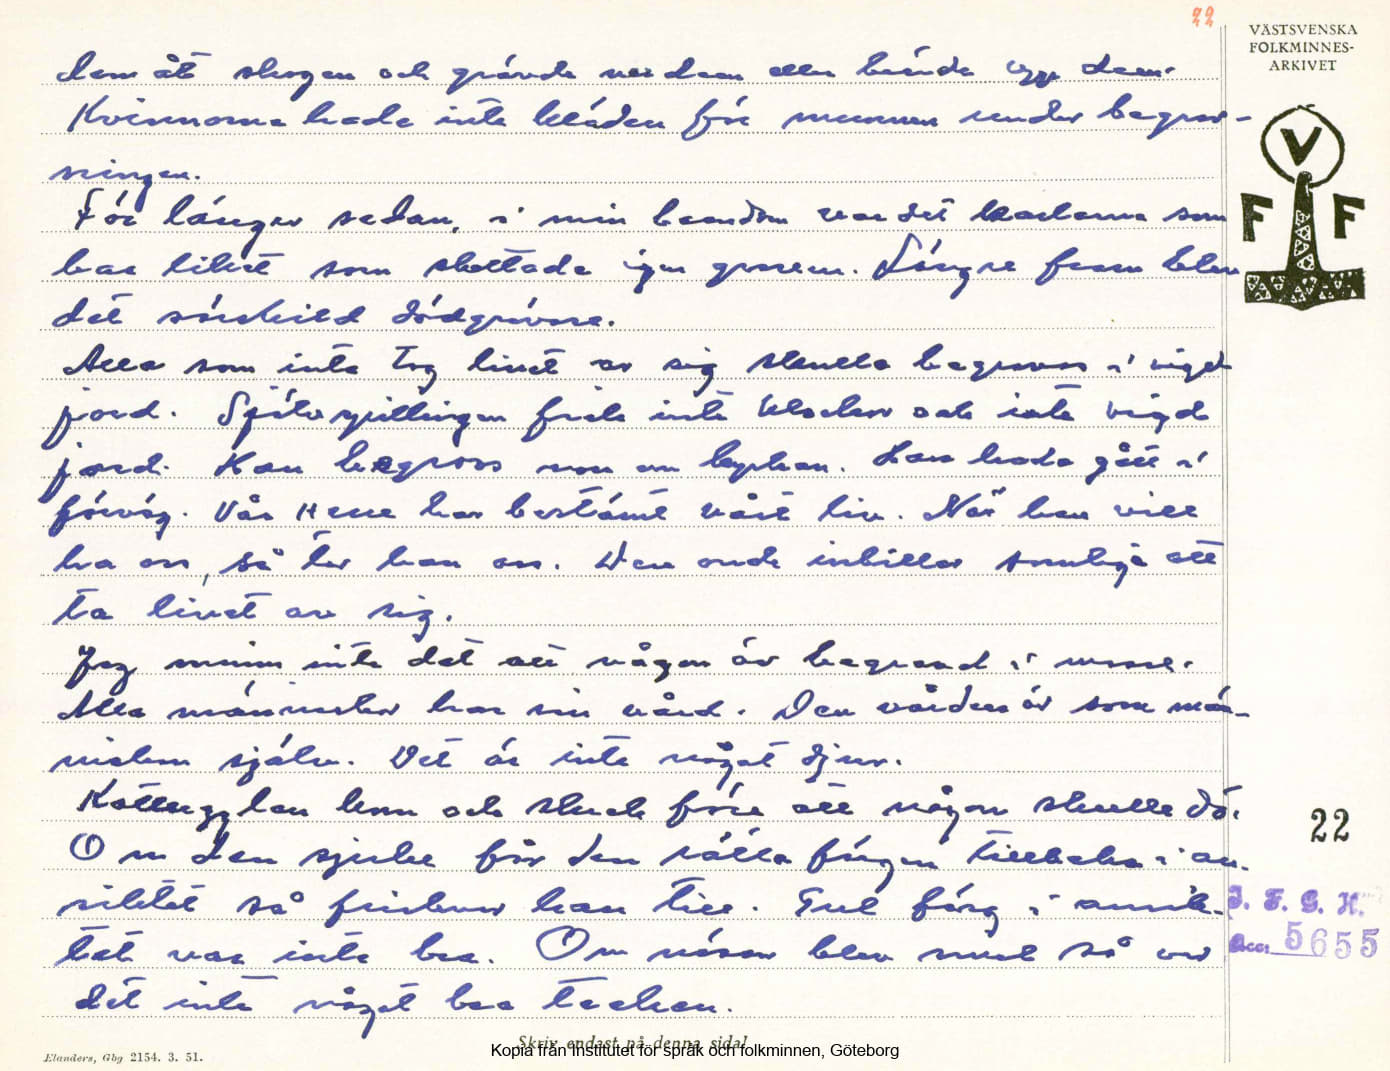 22
VÄSTSVENSKA
FOLKMINNES-
ARKIVET
V
F F
dem åt skogen och grävde ner dem eller brände upp dem.
Kvinnorna hade inte kläden för munnen under begrav-
ningen.
För länger sedan, i min barndom var det karlarna som
bar liket som skottade igen graven. Längre fram blev
det särskild dödgrävare.
Alla som inte tog livet av sig skulle begravas i vigd
jord. Självspillingen fick inte klockor och inte vigd
jord. Han begravs som en byckan. Han hade gått i
förväg. Vår Herre har bestämt vårt liv. När han vill
ha oss, så tar han oss. Den onde inbillar somliga att
ta livet av sig.
Jag minns inte det att någon är begravd i mosse.
Alla människor har sin vård. Den vården är som män-
niskan själv. Det är inte något djur.
Kattugglan kom och skrek före att någon skulle dö.
Om den sjuke får den rätta färgen tillbaka i an-
siktet så frisknar han till. Gul färg i ansik-
tet var inte bra. Om näsan blev smal så var
det inte något bra tecken.
22
I. F. G. H.
Acc. 5655
Skriv endast på denna sida!
Elanders, Gbg 2154. 3. 51.
Kopia från Institutet för språk och folkminnen, Göteborg